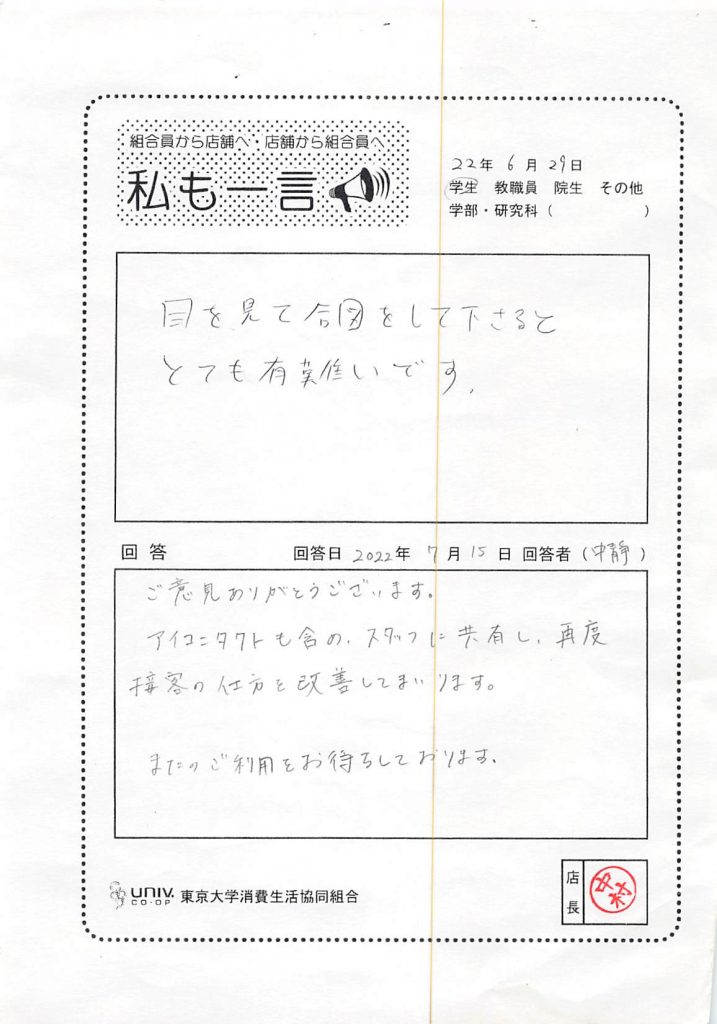 組合員から店舗へ・店舗から組合員へ
私も一言
22年 6月 29日
学生 教職員 院生 その他
学部・研究科（ ）
目を見て合図をして下さると
とても有難いです。
回答 回答日 2022年 7月 15日 回答者（中静）
ご意見ありがとうございます。
アイコンタクトも含め、スタッフに共有し、再度
接客の仕方を改善してまいります。
またのご利用をお待ちしております。
UNIV. CO-OP 東京大学消費生活協同組合
店長
中村